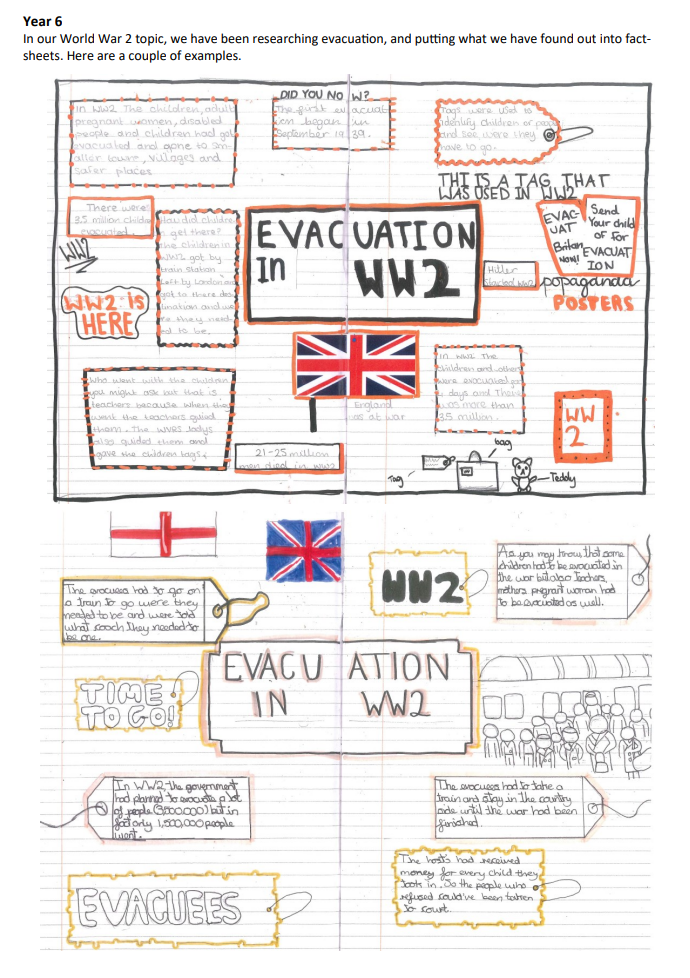 Year 6
In our World War 2 topic, we have been researching evacuation, and putting what we have found out into fact-
sheets. Here are a couple of examples.
DID YOU NO W?
In WW2 The children, adults
pregnant women, disabled
people and children had got
evacuated and gone to sm-
aller towns, villages and
safer places
The first evacuat
ion began in
September 1939.
Tags were used to
identify children or people
and see were they
have to go.
THIS IS A TAG THAT
WAS USED IN WW2
There were
3.5 million childre
evacuated.
WW2
WW2 IS
HERE
How did childre
get there?
the children in
WW2 got by
train station
left by London and
got to there des
ination and we
re they need
ed to be.
EVACUATION
In WW2
EVAC-
UAT
Britan
Now!!
Send
Your child
of for
EVACUAT
ION
Hitler
started ww2
propaganda
POSTERS
Who went with the children
you might ask but that is
teachers because when they
went the teachers guied
them. The wives ladys
also guided them and
gave the children bags.
England
was at war
21-25 million
men died in ww2
In WW2 The
children and others
were evacuated for
days and There
was more than
3.5 million.
WW
2
bag
Tag
Teddy
The evacuees had to go on
a train to go were they
needed to be and were told
what coach they needed to
be one.
WW2
As you may know that some
children had to be evacuated in
the war but also teachers,
mothers pregnant woman had
to be evacuated as well.
TIME
TO GO!
EVACUATION
IN WW2
In WW2 the government
had planned to evacuate a lot
of people (3,000,000) but in
fact only 1,500,000 people
went.
The evacuees had to take a
train and stay in the country
side until the war had been
finished.
EVACUEES
The hosts had received
money for every child they
took in. So the people who
refused could've been taken
to court.